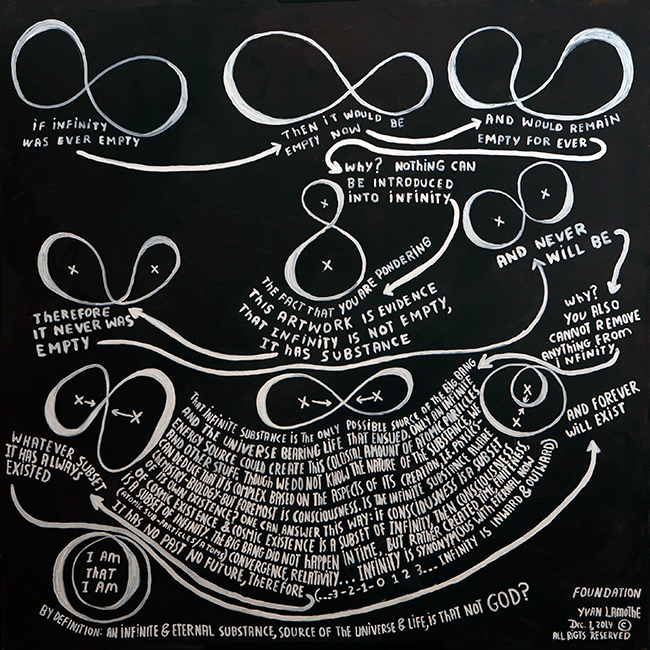 IF INFINITY
WAS EVER EMPTY
THEN IT WOULD BE
EMPTY NOW
AND WOULD REMAIN
EMPTY FOR EVER
WHY? NOTHING CAN
BE INTRODUCED
INTO INFINITY
X
X
THE FACT THAT YOU ARE PONDERING
THIS ARTWORK IS EVIDENCE
THAT INFINITY IS NOT EMPTY,
IT HAS SUBSTANCE
X X
THEREFORE
IT NEVER WAS
EMPTY
X X
AND NEVER
WILL BE
WHY?
YOU ALSO
CANNOT REMOVE
ANYTHING FROM
INFINITY
X X
X X
X
X
THAT INFINITE SUBSTANCE IS THE ONLY POSSIBLE SOURCE OF THE BIG BANG
AND THE UNIVERSE BEARING LIFE THAT ENSUED, ONLY AN INFINITE
ENERGY SOURCE COULD CREATE THIS COLOSSAL AMOUNT OF ATOMIC PARTICLES
AND OTHER STUFF, THOUGH WE DO NOT KNOW THE NATURE OF THE SUBSTANCE, WE
CAN DEDUCE THAT IT IS COMPLEX BASED ON THE ASPECTS OF ITS CREATION, I.E. PHYSICS
CHEMISTRY-BIOLOGY-BUT FOREMOST IS CONSCIOUSNESS. IS THE INFINITE SUBSTANCE AWARE
OF ITS OWN EXISTENCE? ONE CAN ANSWER THIS WAY: IF CONSCIOUSNESS IS A SUBSET
OF COSMIC EXISTENCE & COSMIC EXISTENCE IS A SUBSET OF INFINITY, THEN CONSCIOUSNESS
IS A SUBSET OF INFINITY. THE BIG BANG DID NOT HAPPEN IN TIME, BUT RATHER CREATED TIME, MATTER
CONVERGENCE, RELATIVITY... INFINITY IS SYNONYMOUS WITH ETERNAL NOW,
IT HAS NO PAST NO FUTURE, THEREFORE (...-3-2-1-0 1 2 3... INFINITY IS INWARD & OUTWARD)
AND FOREVER
WILL EXIST
WHATEVER SUBSET
IT HAS ALWAYS
EXISTED
I AM
THAT
I AM
BY DEFINITION: AN INFINITE & ETERNAL SUBSTANCE, SOURCE OF THE UNIVERSE & LIFE, IS THAT NOT GOD?
FOUNDATION
YVAN LAMOTHE
DEC. 1, 2014 ©
ALL RIGTS RESERVED